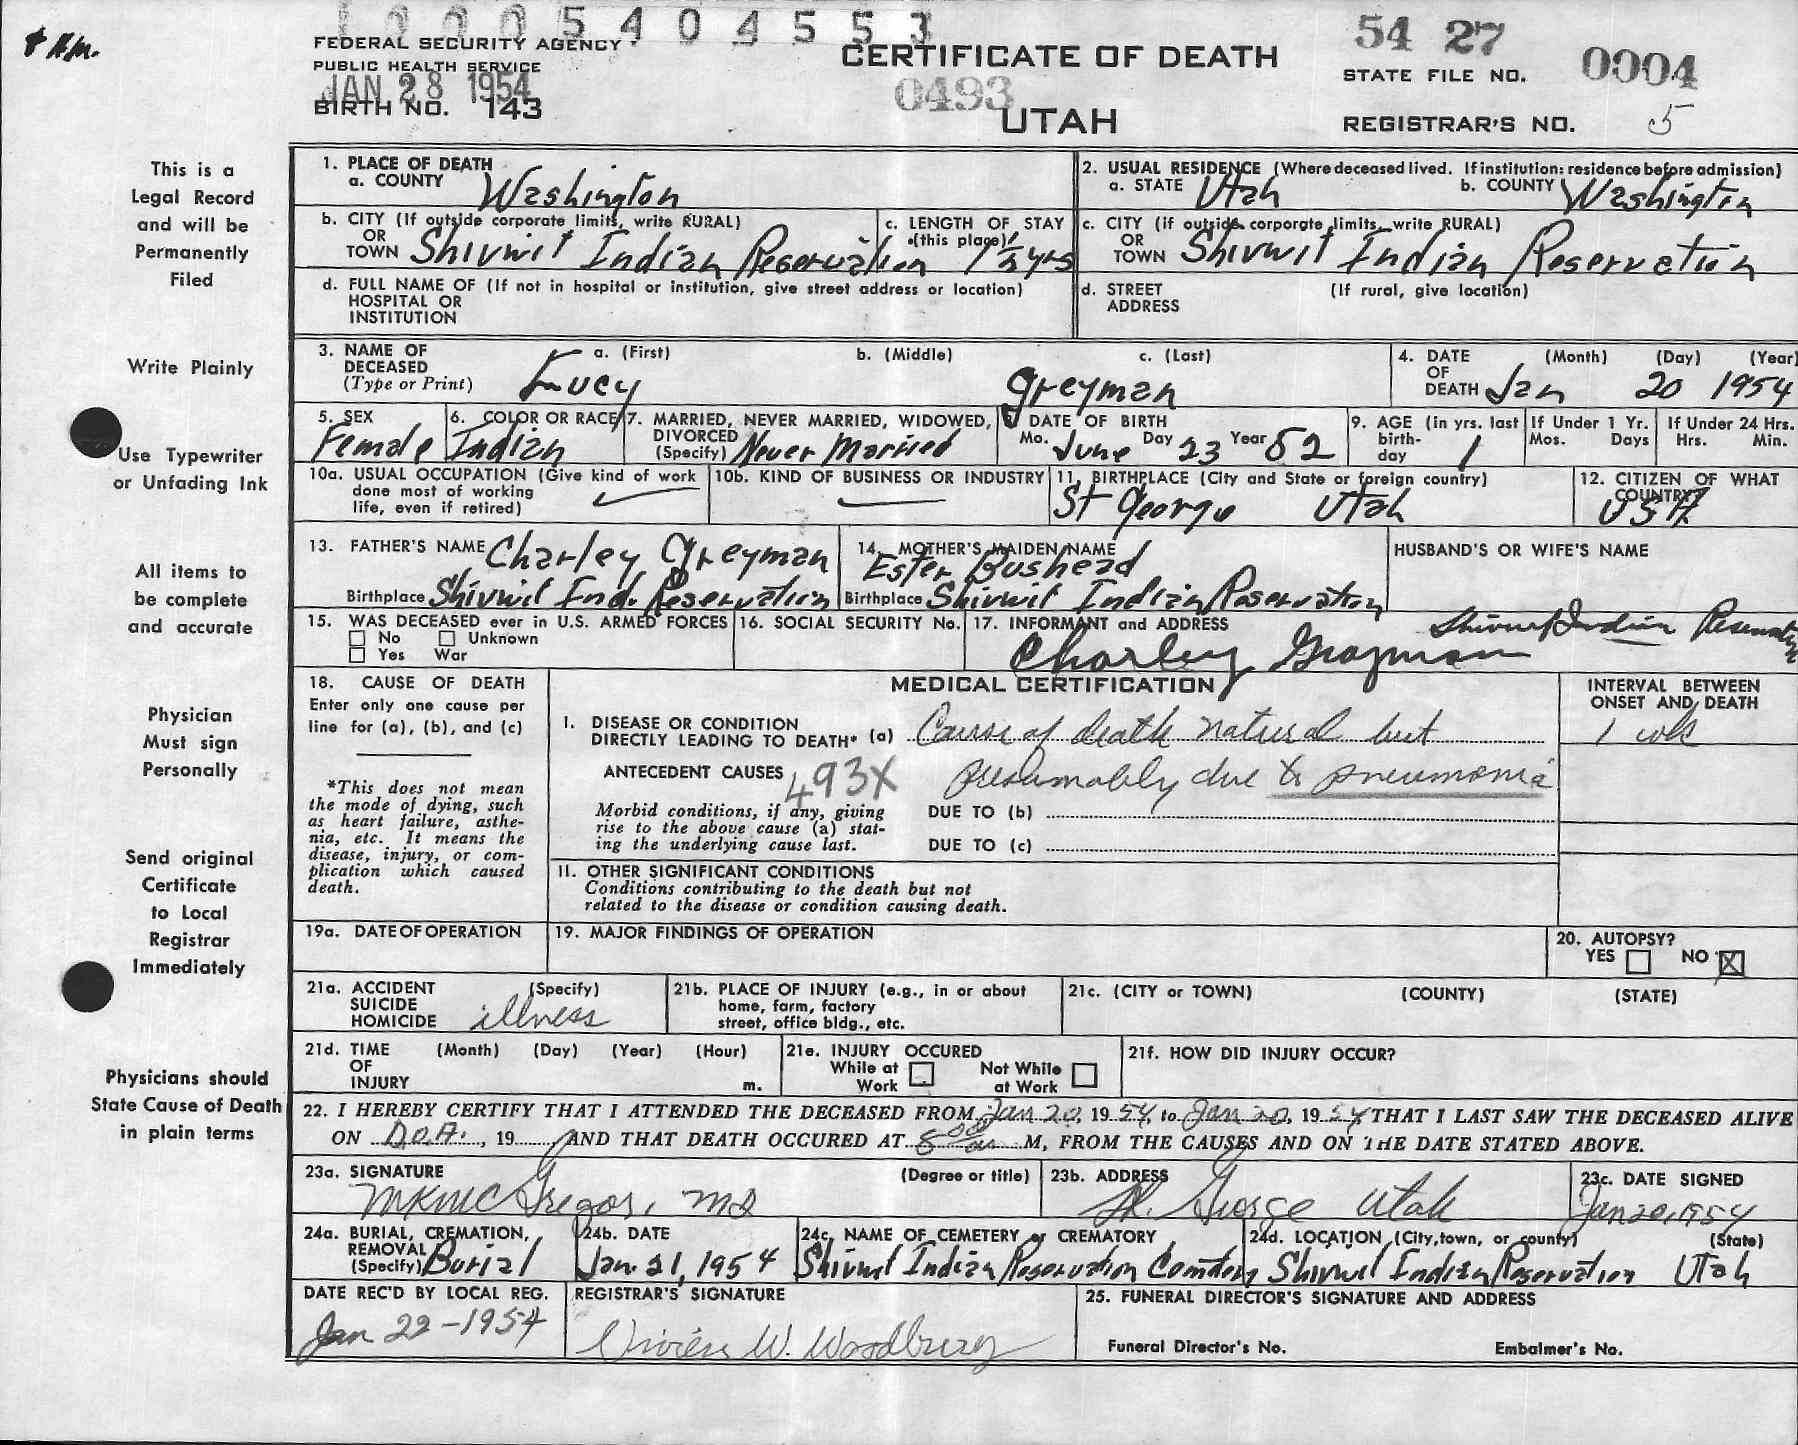 1 0 0 0 5 4 0 4 5 5 3
FEDERAL SECURITY AGENCY
PUBLIC HEALTH SERVICE
JAN 28 1954
BIRTH NO. 143
CERTIFICATE OF DEATH
0493
UTAH
54 27
STATE FILE NO. 0004
REGISTRAR'S NO. 5
This is a
Legal Record
and will be
Permanently
Filed
Write Plainly
Use Typewriter
or Unfading Ink
All items to
be complete
and accurate
Physician
Must sign
Personally
Send original
Certificate
to Local
Registrar
Immediately
Physicians should
State Cause of Death
in plain terms
1. PLACE OF DEATH
a. COUNTY Washington
2. USUAL RESIDENCE (Where deceased lived. If institution: residence before admission)
a. STATE Utah b. COUNTY Washington
b. CITY (If outside corporate limits, write RURAL)
OR
TOWN Shivwit Indian Reservation
c. LENGTH OF STAY
(this place) 1 1/2 yrs
c. CITY (If outside corporate limits, write RURAL)
OR
TOWN Shivwit Indian Reservation
d. FULL NAME OF (If not in hospital or institution, give street address or location)
HOSPITAL OR
INSTITUTION
d. STREET (If rural, give location)
ADDRESS
3. NAME OF a. (First) b. (Middle) c. (Last)
DECEASED
(Type or Print) Lucy Greyman
4. DATE (Month) (Day) (Year)
OF
DEATH Jan 20 1954
5. SEX
Female
6. COLOR OR RACE
Indian
7. MARRIED, NEVER MARRIED, WIDOWED,
DIVORCED
(Specify) Never Married
DATE OF BIRTH
Mo. June Day 23 Year 52
9. AGE (in yrs. last
birth-
day 1
If Under 1 Yr.
Mos. Days
If Under 24 Hrs.
Hrs. Min.
10a. USUAL OCCUPATION (Give kind of work
done most of working
life, even if retired)
10b. KIND OF BUSINESS OR INDUSTRY
11. BIRTHPLACE (City and State or foreign country)
St George Utah
12. CITIZEN OF WHAT
COUNTRY?
USA
13. FATHER'S NAME Charley Greyman
Birthplace Shivwit Ind. Reservation
14. MOTHER'S MAIDEN NAME
Ester Bushead
Birthplace Shivwit Indian Reservation
HUSBAND'S OR WIFE'S NAME
15. WAS DECEASED ever in U.S. ARMED FORCES
No Unknown
Yes War
16. SOCIAL SECURITY No.
17. INFORMANT and ADDRESS
Charley Grayman Shivwit Indian
18. CAUSE OF DEATH
Enter only one cause per
line for (a), (b), and (c)
*This does not mean
the mode of dying, such
as heart failure, asthe-
nia, etc. It means the
disease, injury, or com-
plication which caused
death.
MEDICAL CERTIFICATION
INTERVAL BETWEEN
ONSET AND DEATH
I. DISEASE OR CONDITION
DIRECTLY LEADING TO DEATH* (a) Cause of death natural but
1 wk
ANTECEDENT CAUSES 493X presumably due to pneumonia
Morbid conditions, if any, giving
rise to the above cause (a) stat-
ing the underlying cause last.
DUE TO (b)
DUE TO (c)
11. OTHER SIGNIFICANT CONDITIONS
Conditions contributing to the death but not
related to the disease or condition causing death.
19a. DATE OF OPERATION
19. MAJOR FINDINGS OF OPERATION
20. AUTOPSY?
YES NO X
21a. ACCIDENT (Specify)
SUICIDE
HOMICIDE illness
21b. PLACE OF INJURY (e.g., in or about
home, farm, factory
street, office bldg., etc.
21c. (CITY or TOWN) (COUNTY) (STATE)
21d. TIME (Month) (Day) (Year) (Hour)
OF
INJURY m.
21e. INJURY OCCURED
While at Work Not While at Work
21f. HOW DID INJURY OCCUR?
22. I HEREBY CERTIFY THAT I ATTENDED THE DECEASED FROM Jan 20, 1954, to Jan 20, 1954, THAT I LAST SAW THE DECEASED ALIVE
ON D.O.A., 19 AND THAT DEATH OCCURED AT 8:00 a M, FROM THE CAUSES AND ON THE DATE STATED ABOVE.
23a. SIGNATURE (Degree or title)
MK McGregor, MD
23b. ADDRESS
St. George Utah
23c. DATE SIGNED
Jan 20, 1954
24a. BURIAL, CREMATION,
REMOVAL
(Specify) Burial
24b. DATE
Jan. 21, 1954
24c. NAME OF CEMETERY or CREMATORY
Shivwit Indian Reservation Cemetery
24d. LOCATION (City, town, or county) (State)
Shivwit Indian Reservation Utah
DATE REC'D BY LOCAL REG.
Jan 22-1954
REGISTRAR'S SIGNATURE
Vivien W. Woodbury
25. FUNERAL DIRECTOR'S SIGNATURE AND ADDRESS
Funeral Director's No. Embalmer's No.